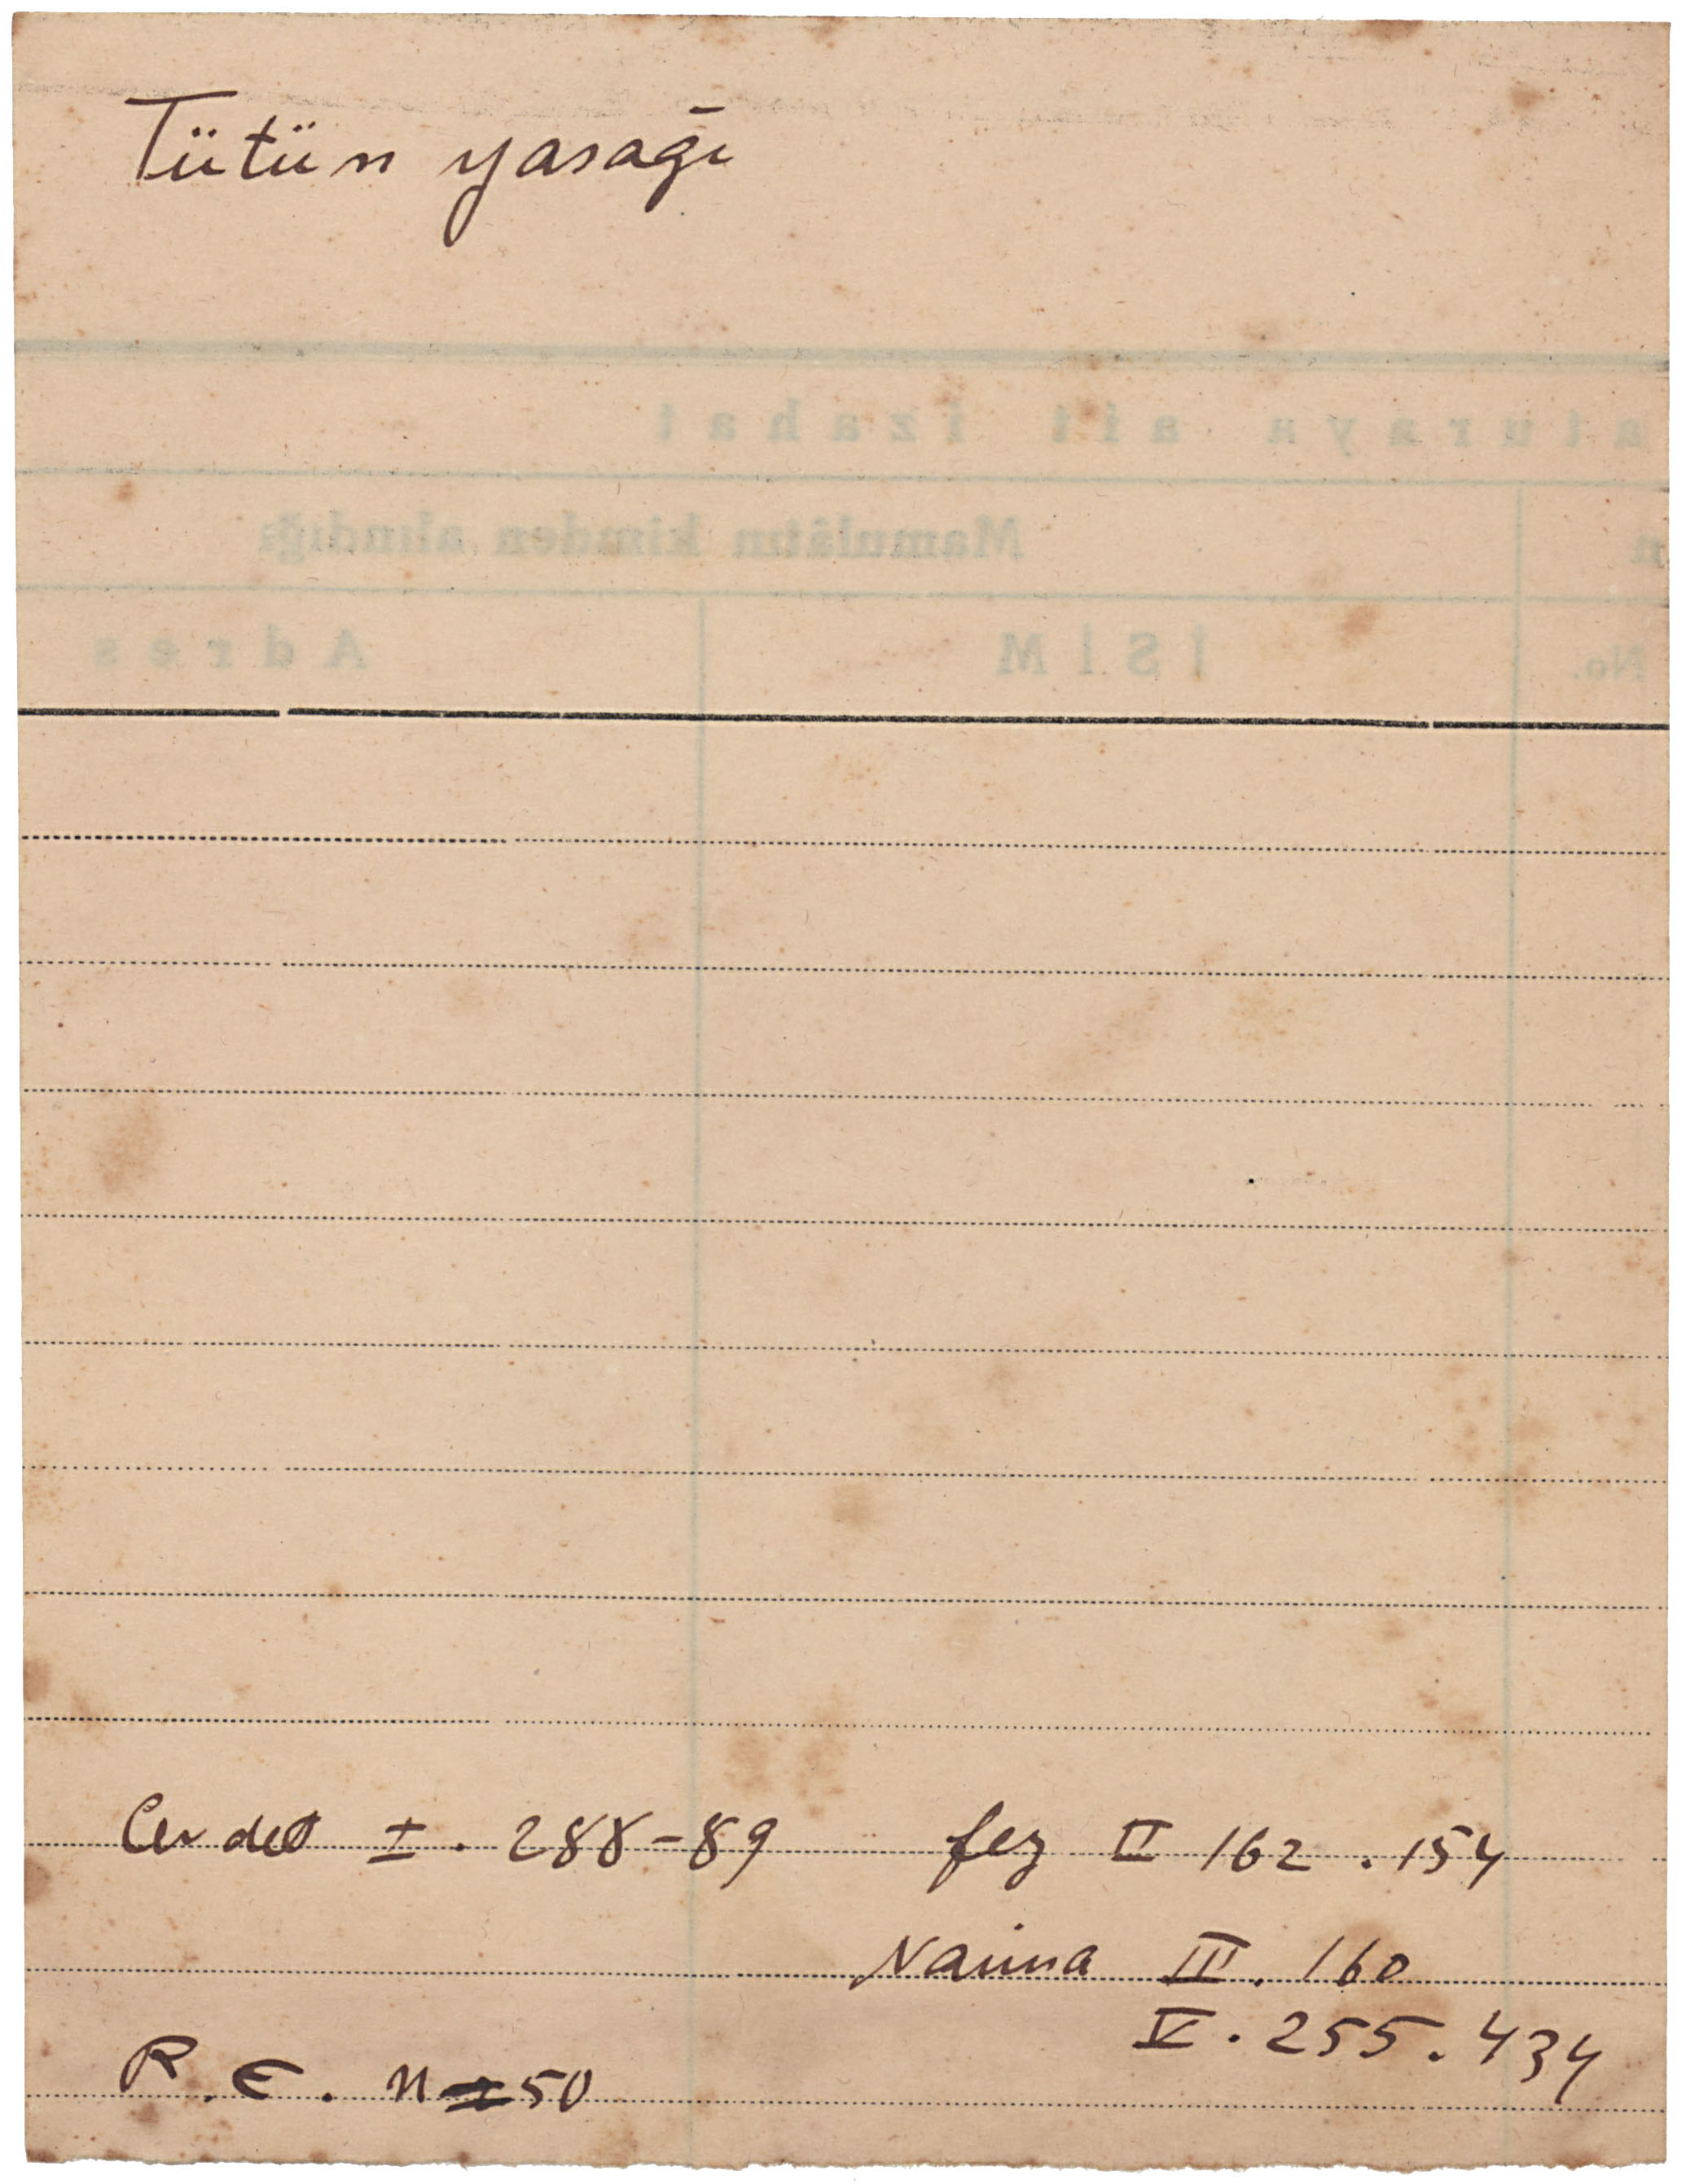 Tütün yasağı
aturaya ait izahat
Mamulâtın kimden alındığı
n
Adres
İSİM
No.
Cevdet I. 288-89 fez II 162. 154
Naima III. 160
V. 255. 434
R. E. n 50